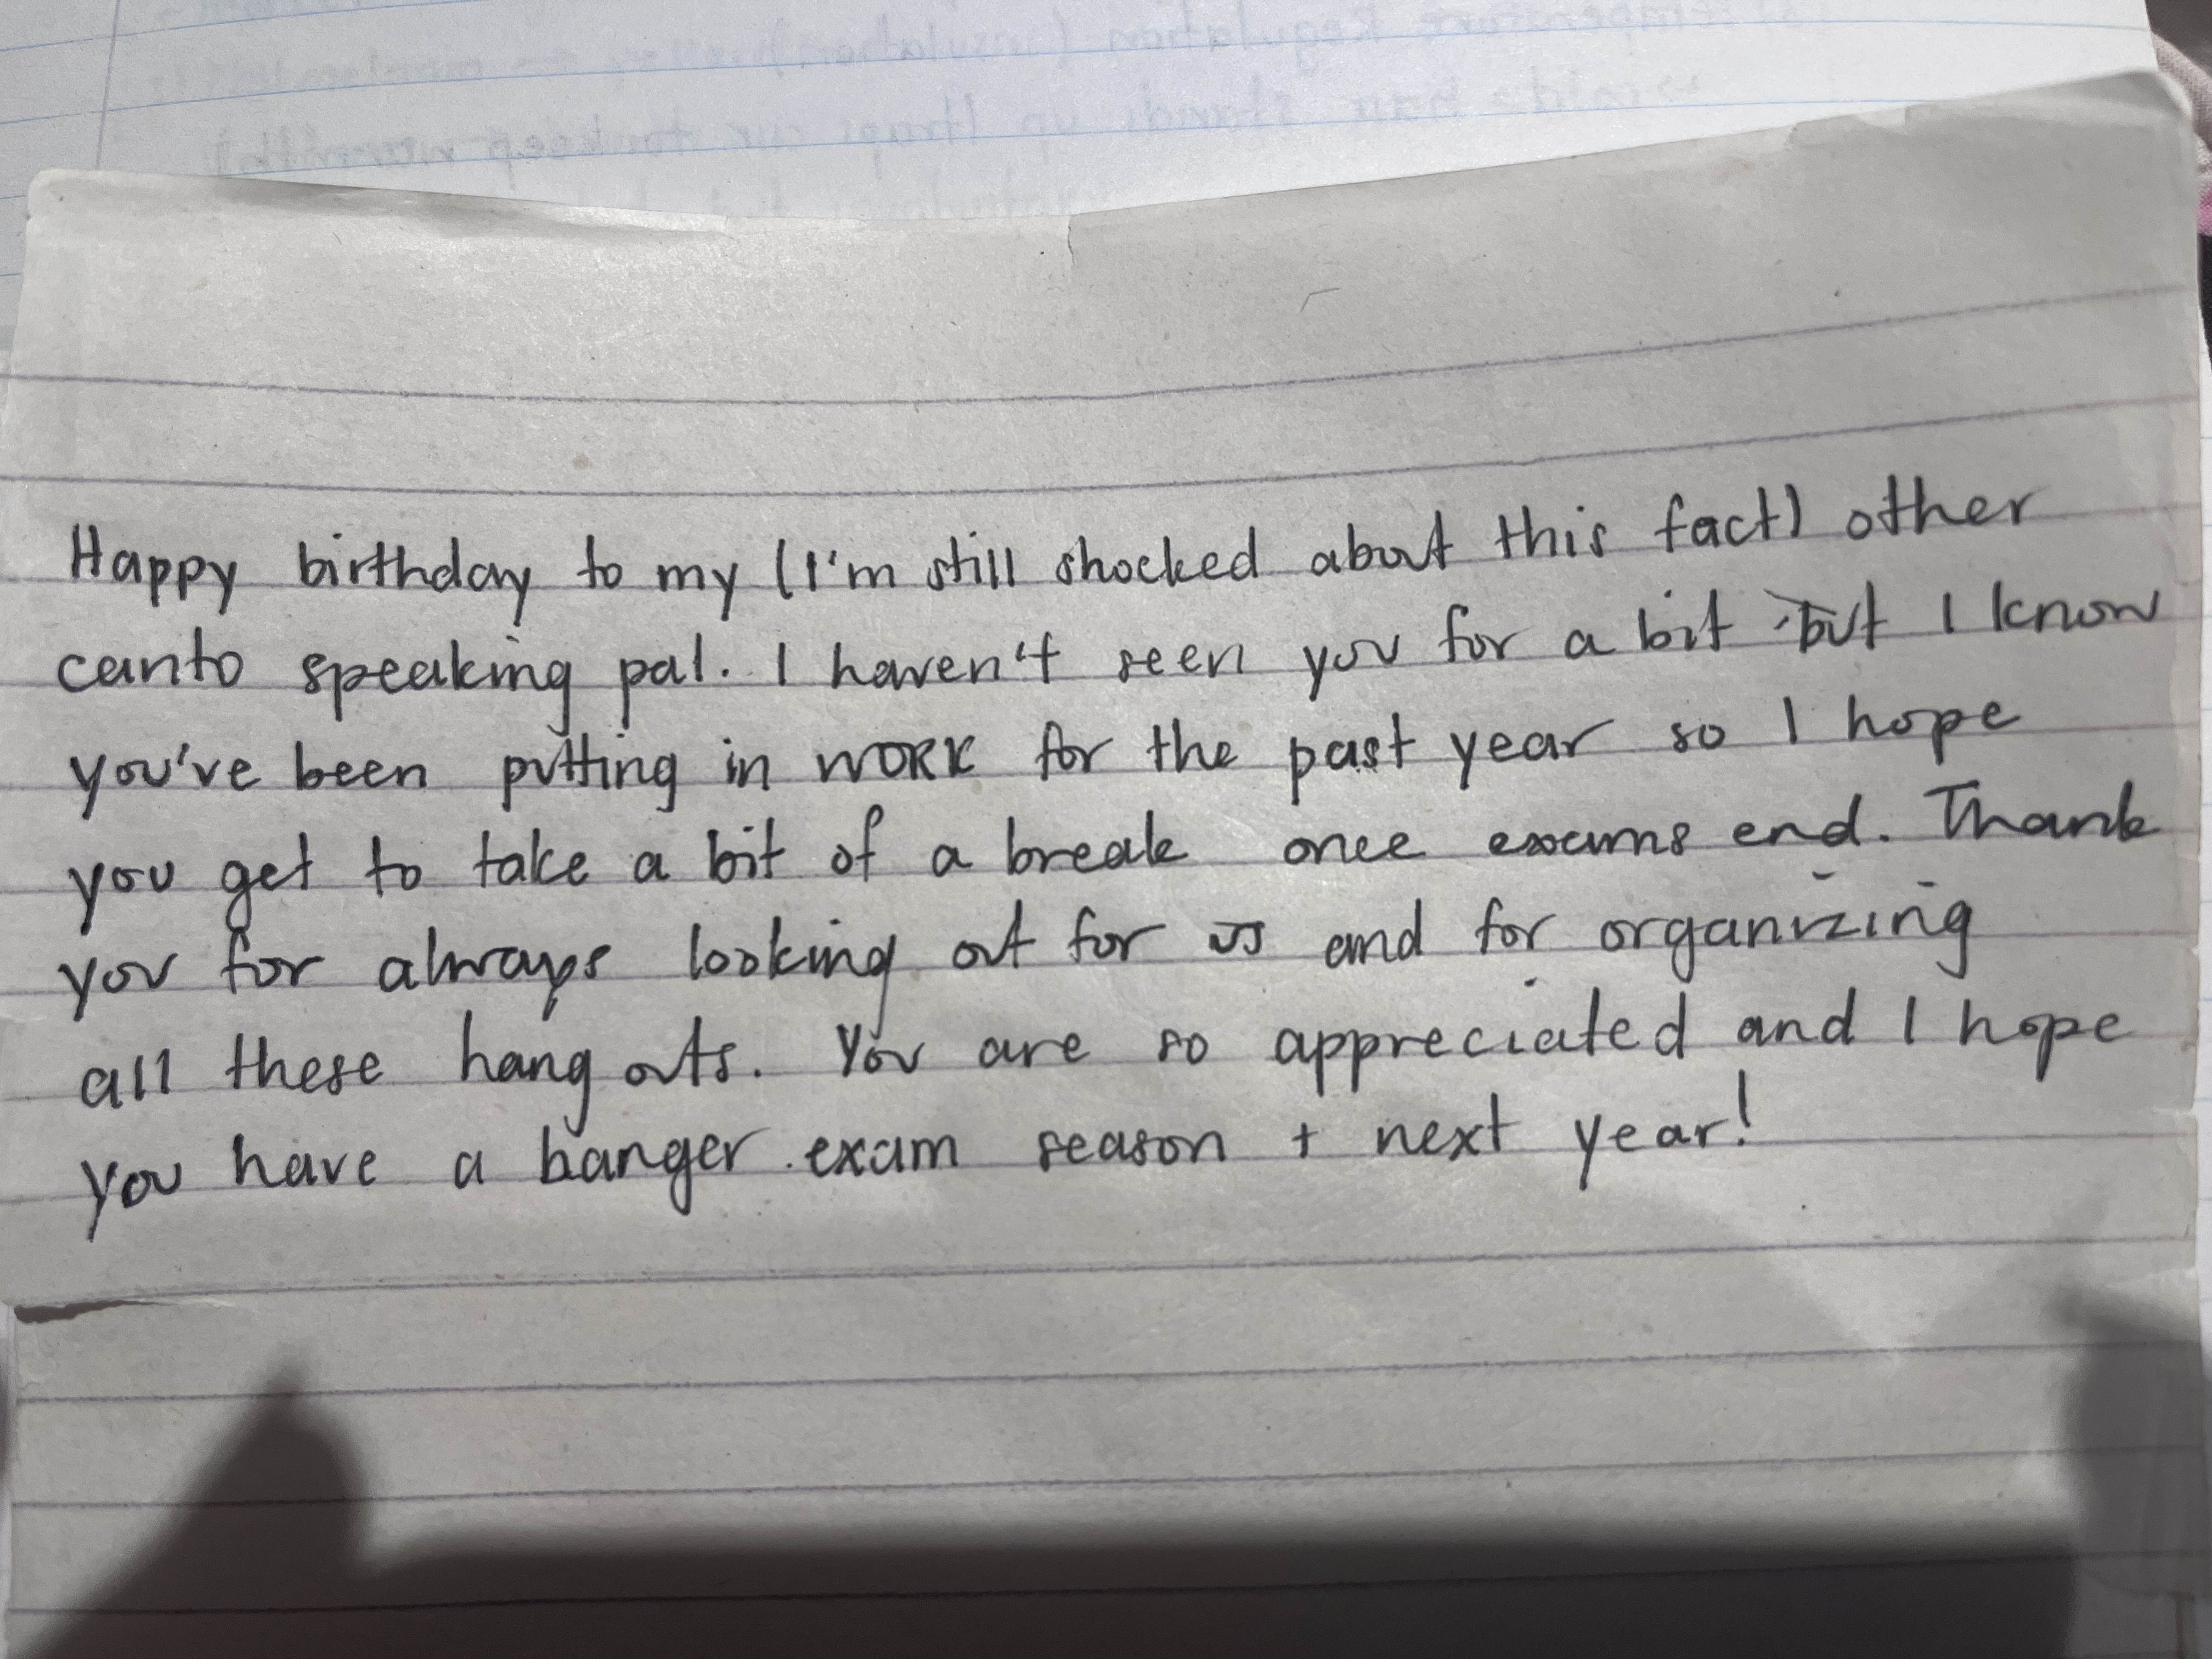 Temperature Regulation (insulation)
hair stands up traps air to keep warmth
Happy birthday to my (I'm still shocked about this fact) other
canto speaking pal. I haven't seen you for a bit but I know
you've been putting in WORK for the past year so I hope
you get to take a bit of a break once exams end. Thank
you for always looking out for us and for organizing
all these hang outs. You are so appreciated and I hope
you have a banger exam season + next year!